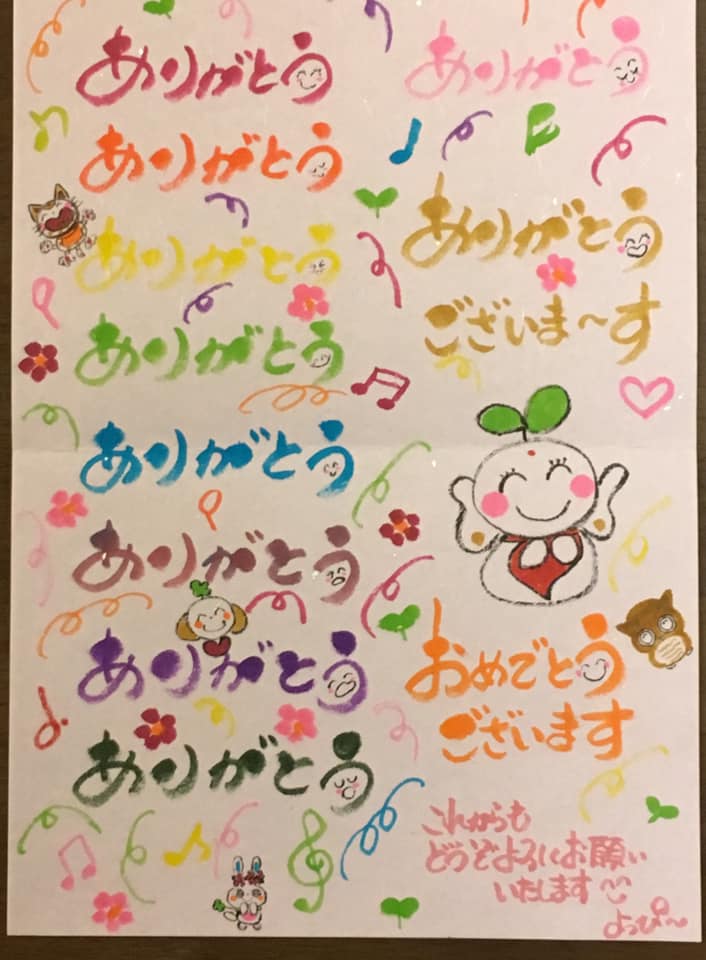 ありがとう
ありがとう
ありがとう
ありがとう
ありがとう
ありがとう
ありがとう
ありがとう
ありがとう
ありがとう
ございま〜す
おめでとう
ございます
これからも
どうぞよろしくお願い
いたします
よっぴ〜